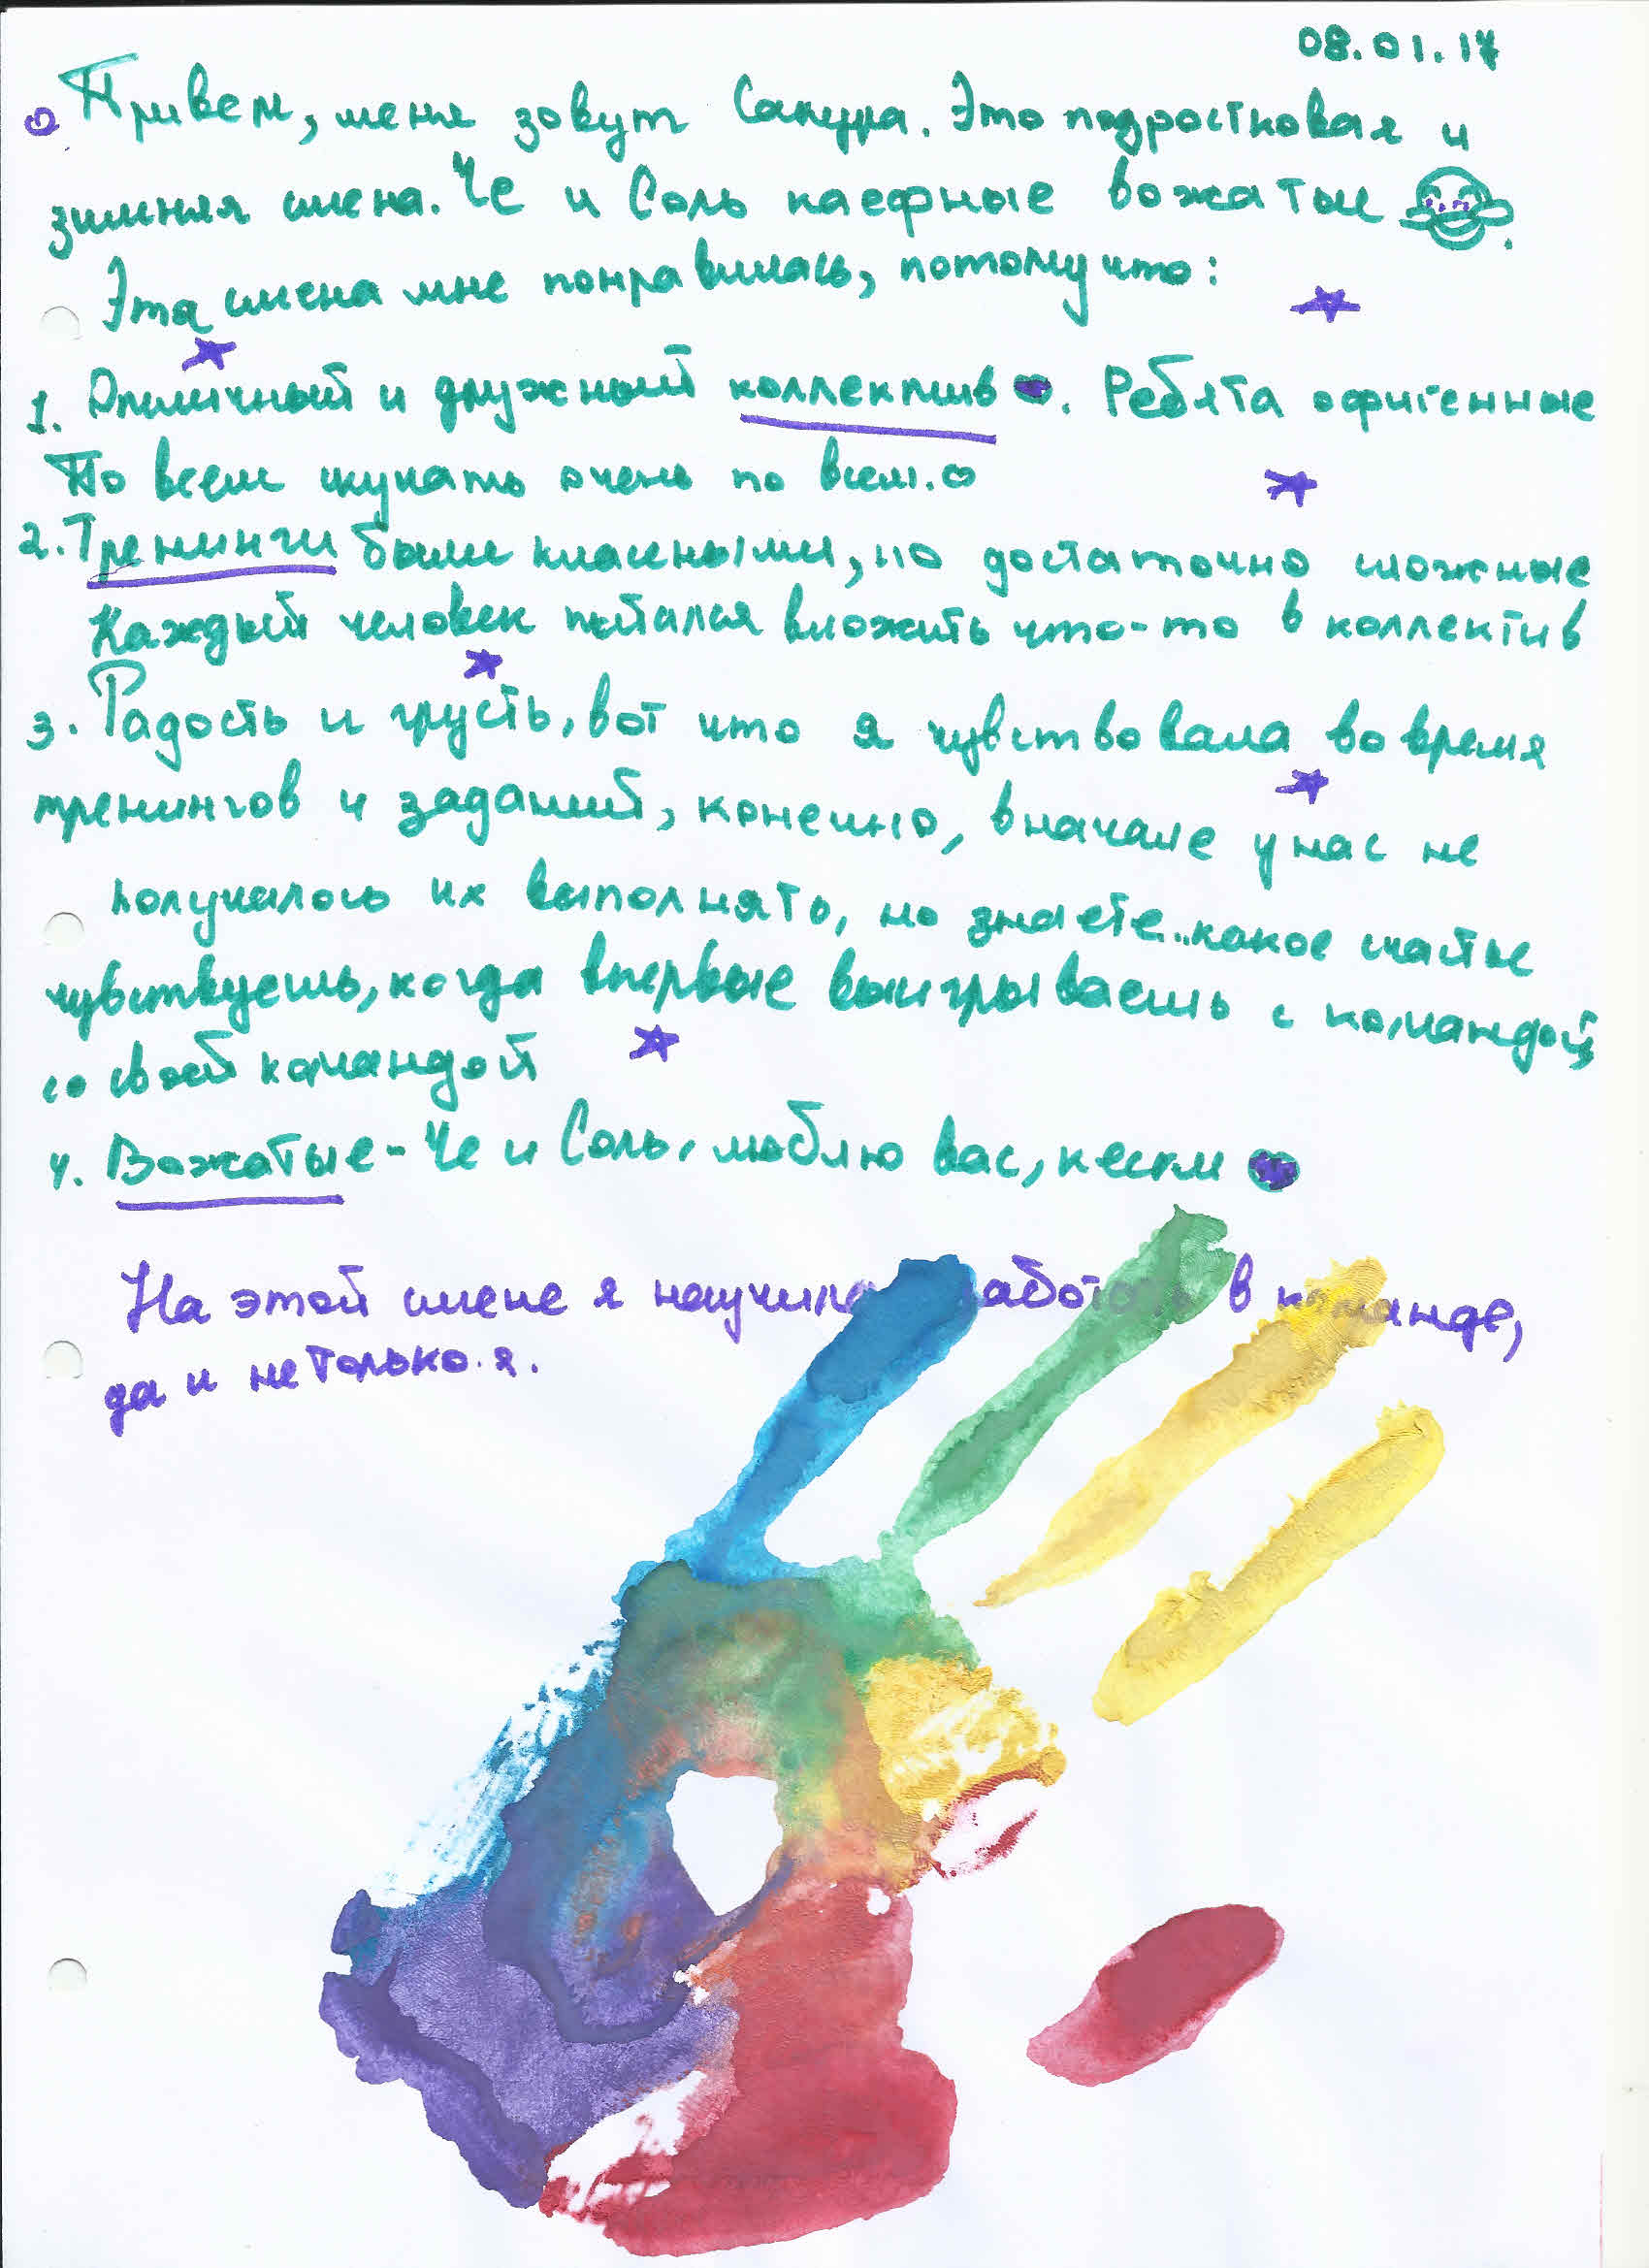 08.01.17
Привет, меня зовут Сакура. Это подростковая и
зимняя смена. Че и Соль каефные вожатые
Эта смена мне понравилась, потому что:
1. Отличный и дружный коллектив. Ребята офигенные
По всем скучать очень по всем.
2. Тренинги были классными, но достаточно сложные
Каждый человек пытался вложить что-то в коллектив
3. Радость и грусть, вот что я чувствовала во время
тренингов и заданий, конешно, вначале у нас не
получалось их выполнять, но знаете..какое счастье
чувствуешь, когда впервые выигрываешь с командой
со своей командой
4. Вожатые - Че и Соль, люблю вас, кести
На этой смене я работать в команде,
да и не только я.